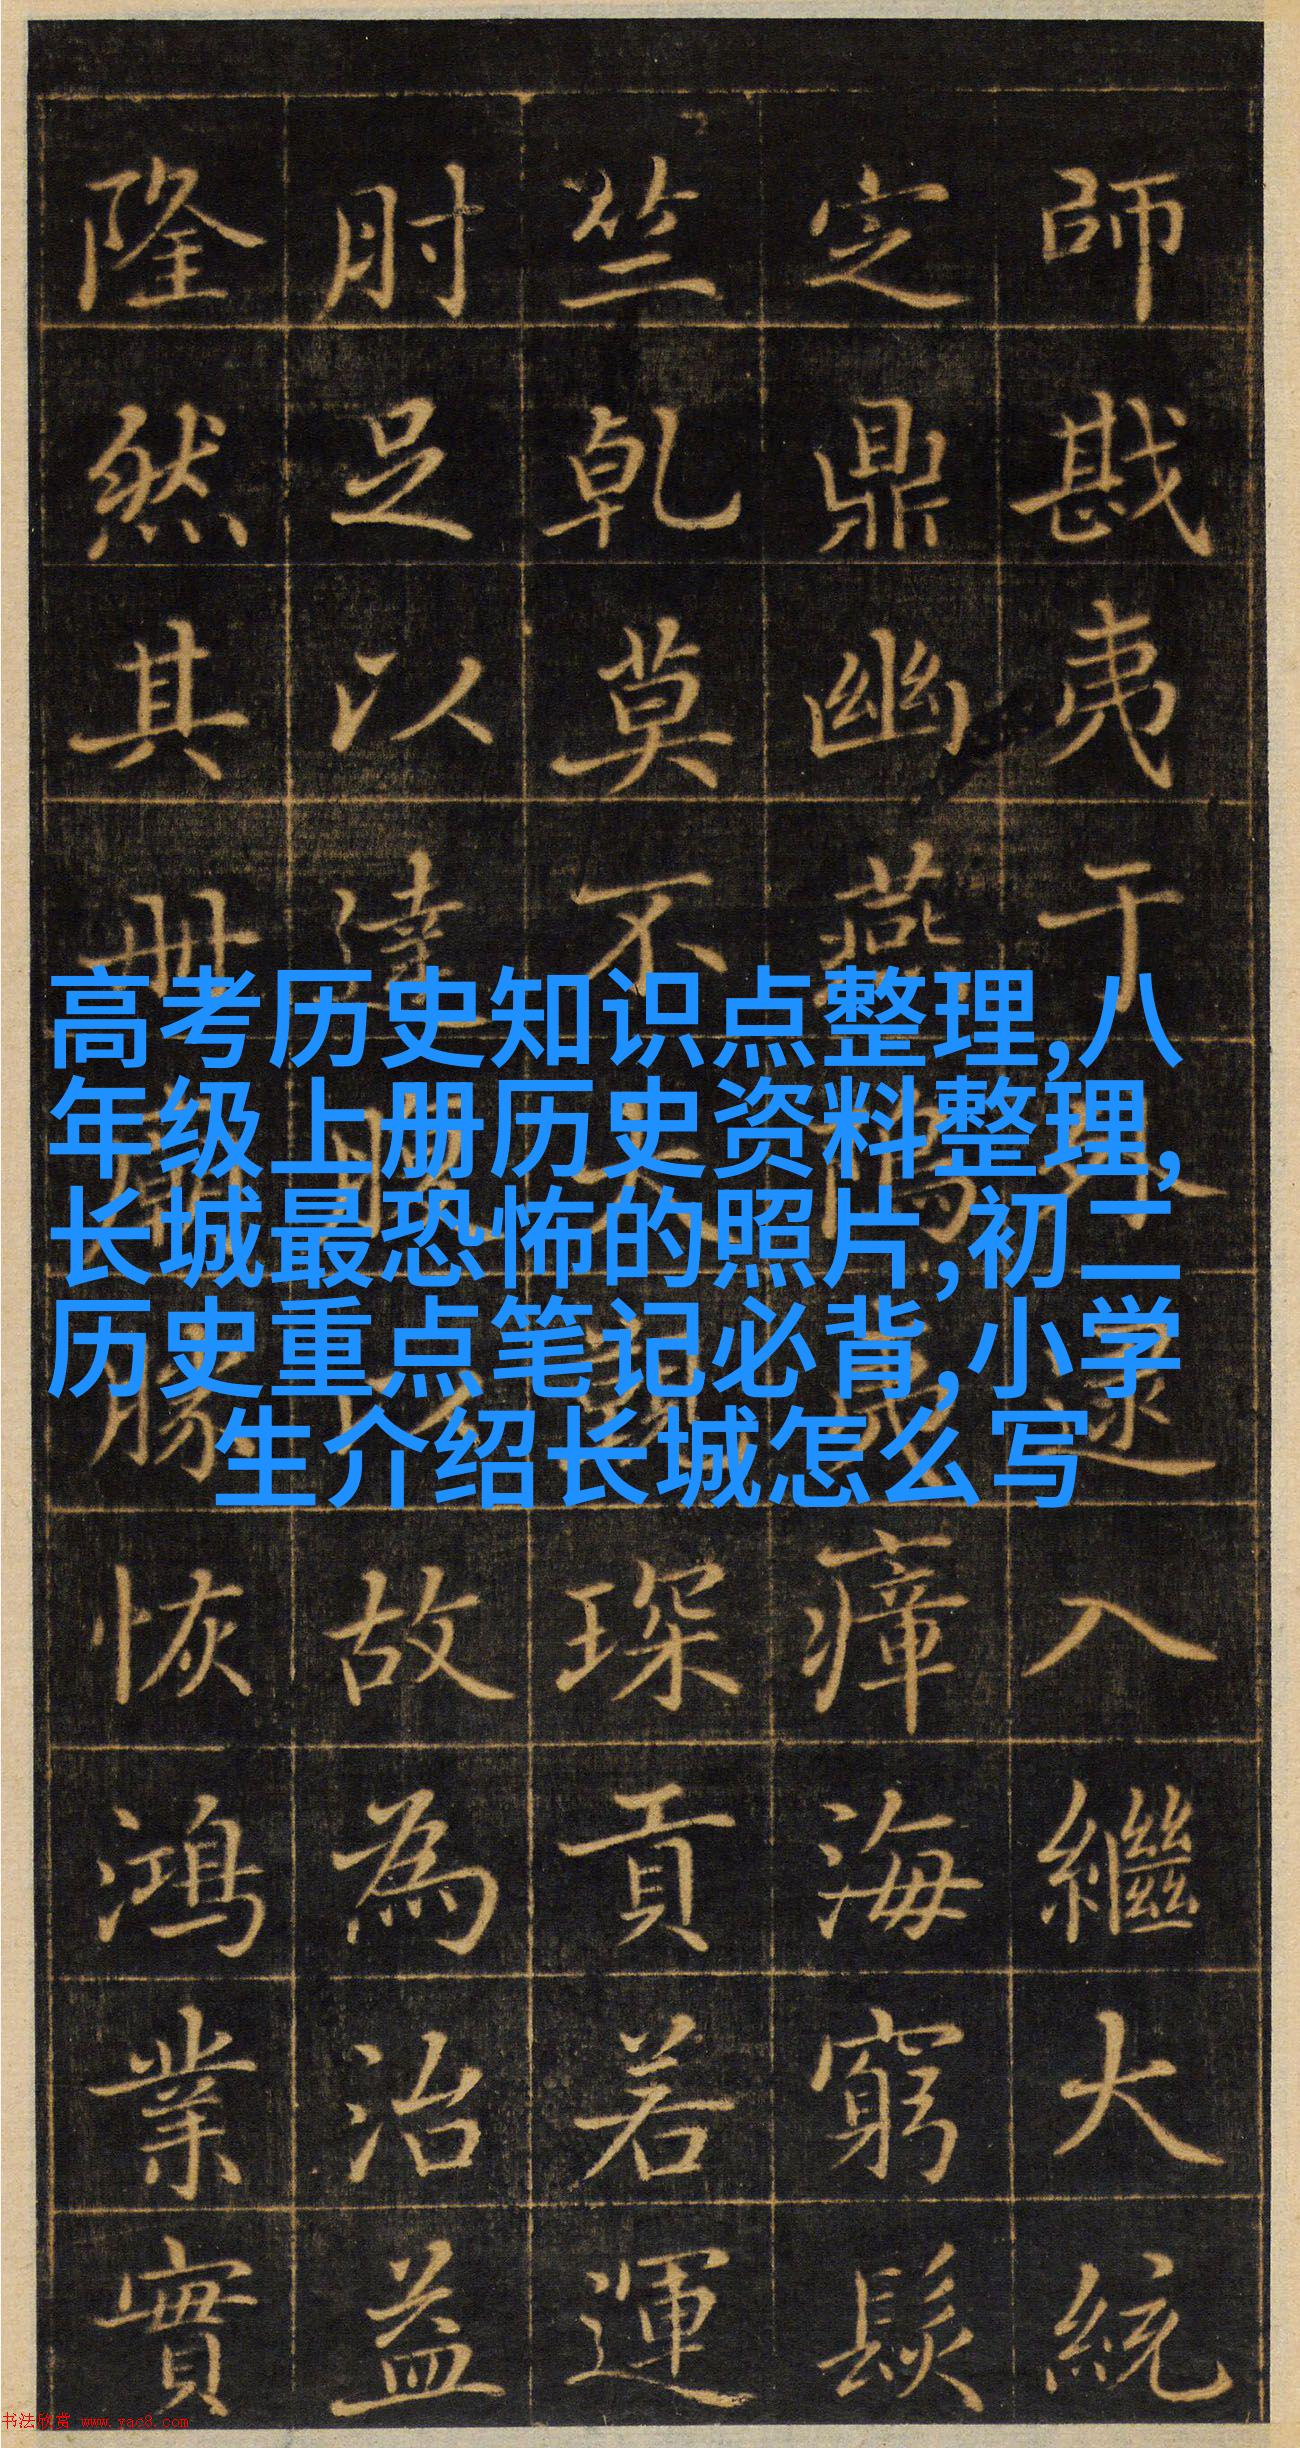 師戡夷于外逮入繼大統
定鼎幽燕瘴海窮髮
竺乾莫不琛貢若運
肘足以達故為治益
隆然其册勝恢鴻業實
高考历史知识点整理,八
年级上册历史资料整理,
长城最恐怖的照片,初二
历史重点笔记必背,小学
生介绍长城怎么写
书法欣赏 www.yac8.com